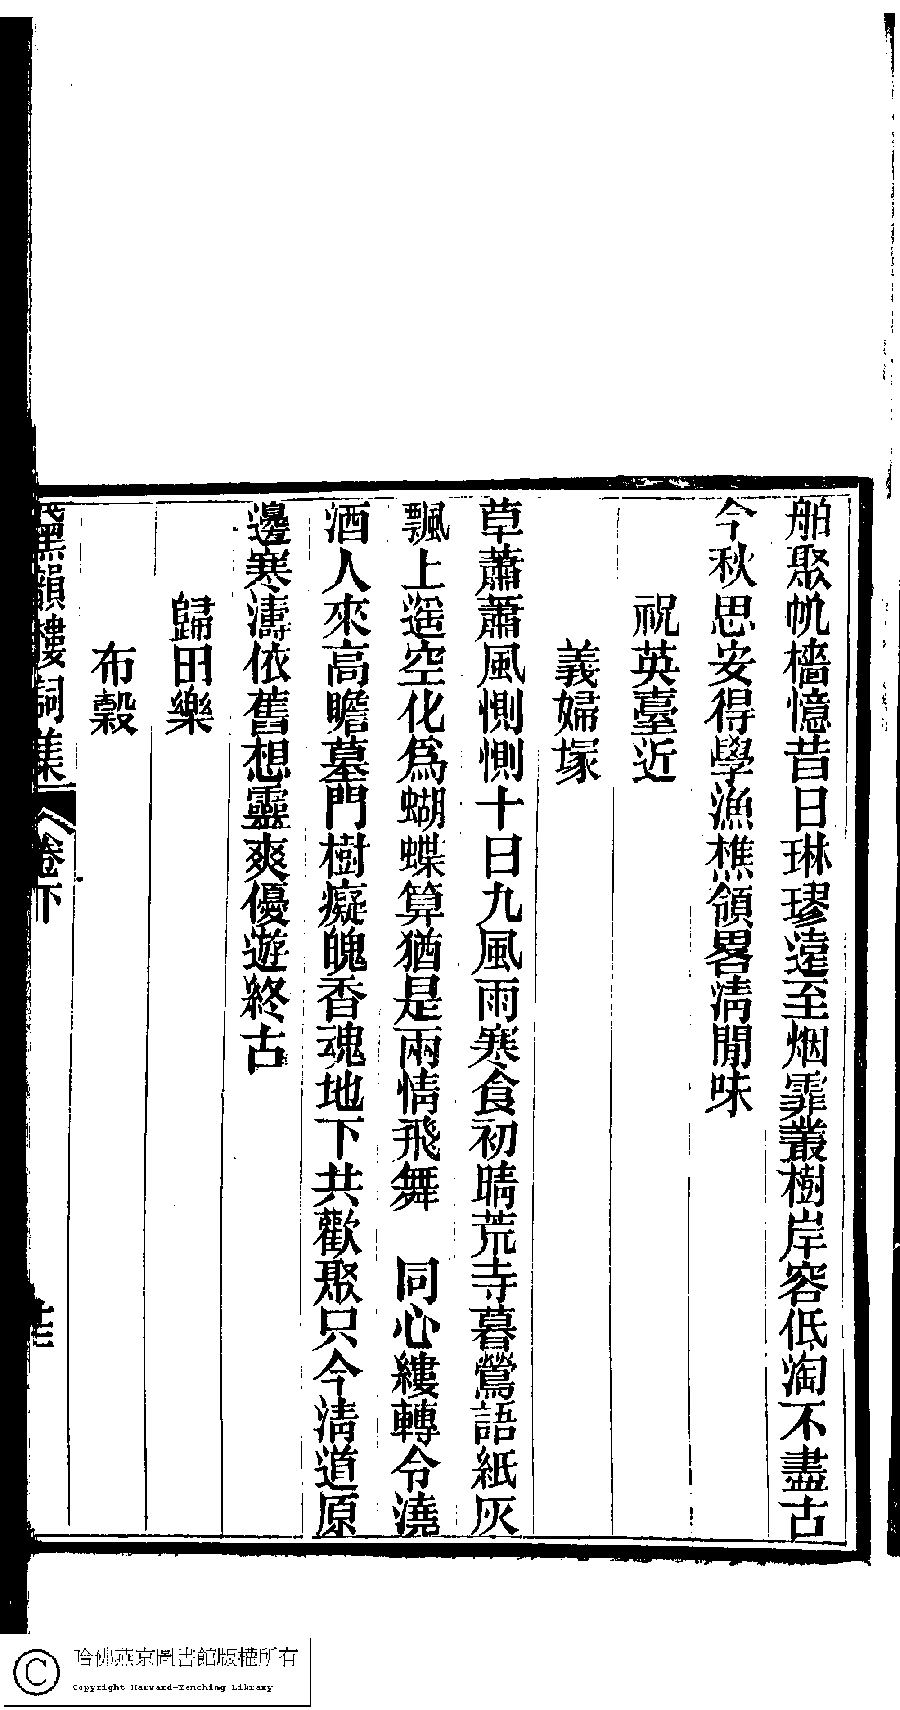 舶聚帆檣憶昔日琳璆遠至烟霏叢樹岸容低淘不盡古
今秋思安得學漁樵領畧清閒味
祝英臺近
義婦塚
草蕭蕭風惻惻十日九風雨寒食初晴荒寺暮鶯語紙灰
飄上遥空化爲蝴蝶算猶是兩情飛舞　同心縷轉令澆
酒人來高瞻墓門樹癡魄香魂地下共歡聚只今清道原
邊寒濤依舊想靈爽優遊終古
歸田樂
布穀
黛韻樓詞集　卷下
哈佛燕京圖書館版權所有
Copyright Harvard-Yenching Library